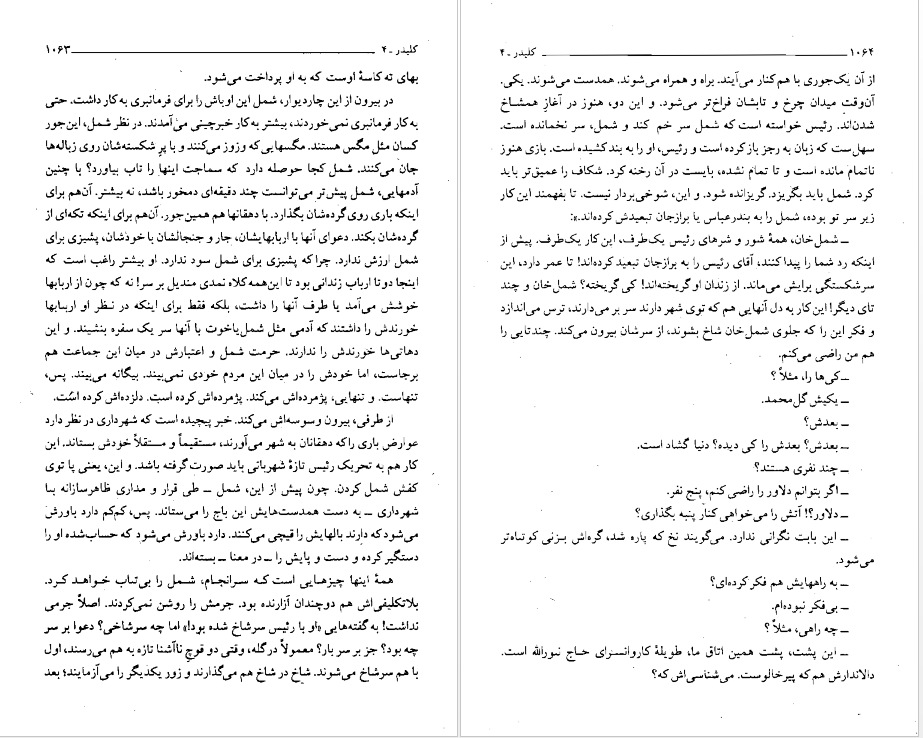 کلیدر ـ ۴ ۱۰۶۳
بهای ته کاسهٔ اوست که به او پرداخت می‌شود.
در بیرون از این چاردیوار، شمل این اوباش را برای فرمانبری به کار داشت. حتی
به کار فرمانبری نمی‌خوردند، بیشتر به کار خبرچینی می‌آمدند. در نظر شمل، این‌جور
کسان مثل مگس هستند. مگسهایی که وزوز می‌کنند و با پرِ شکسته‌شان روی زباله‌ها
جان می‌کنند. شمل کجا حوصله دارد که سماجت اینها را تاب بیاورد؟ با چنین
آدمهایی، شمل پیش‌تر می‌توانست چند دقیقه‌ای دمخور باشد، نه بیشتر. آن‌هم برای
اینکه باری روی گرده‌شان بگذارد. با دهقانها هم همین‌جور. آن‌هم برای اینکه تکه‌ای از
گرده‌شان بکند. دعوای آنها با اربابهایشان، جار و جنجالشان با خودشان، پشیزی برای
شمل ارزش ندارد. چرا که پشیزی برای شمل سود ندارد. او بیشتر راغب است که
اینجا دو تا ارباب زندانی بود تا این‌همه کلاه نمدی مندیل بر سر! نه که چون از اربابها
خوشش می‌آمد یا طرف آنها را داشت، بلکه فقط برای اینکه در نظر او اربابها
خورندش را داشتند که آدمی مثل شمل‌یاخوت با آنها سر یک سفره بنشیند. و این
دهاتی‌ها خورندش را ندارند. حرمت شمل و اعتبارش در میان این جماعت هم
برجاست، اما خودش را در میان این مردم خودی نمی‌بیند. بیگانه می‌بیند. پس،
تنهاست. و تنهایی، پژمرده‌اش می‌کند. پژمرده‌اش کرده است. دلزده‌اش کرده است.
از طرفی، بیرون وسوسه‌اش می‌کند. خبر پیچیده است که شهرداری در نظر دارد
عوارض باری را که دهقانان به شهر می‌آورند، مستقیماً و مستقلاً خودش بستاند. این
کار هم به تحریک رئیس تازهٔ شهربانی باید صورت گرفته باشد. و این، یعنی پا توی
کفش شمل کردن. چون پیش از این، شمل ــ طی قرار و مداری ظاهرسازانه با
شهرداری ــ به دست همدست‌هایش این باج را می‌ستاند. پس، کم‌کم دارد باورش
می‌شود که دارند بالهایش را قیچی می‌کنند. دارد باورش می‌شود که حساب‌شده او را
دستگیر کرده و دست و پایش را ــ در معنا ــ بسته‌اند.
همهٔ اینها چیزهایی است که سرانجام، شمل را بی‌تاب خواهد کرد.
بلاتکلیفی‌اش هم دوچندان آزارنده بود. جرمش را روشن نمی‌کردند. اصلاً جرمی
نداشت! به گفته‌هایی «او با رئیس سرشاخ شده بود!» اما چه سرشاخی؟ دعوا بر سر
چه بود؟ جز بر سر بار؟ معمولاً در گله، وقتی دو قوچ ناآشنا تازه به هم می‌رسند، اول
با هم سرشاخ می‌شوند. شاخ در شاخ هم می‌گذارند و زور یکدیگر را می‌آزمایند؛ بعد
۱۰۶۴ کلیدر ـ ۴
از آن یک‌جوری با هم کنار می‌آیند. براه و همراه می‌شوند. همدست می‌شوند. یکی.
آن‌وقت میدان چرخ و تابشان فراخ‌تر می‌شود. و این دو، هنوز در آغازِ همشاخ
شدن‌اند. رئیس خواسته است که شمل سر خم کند و شمل، سر نخمانده است.
سهل‌ست که زبان به رجز باز کرده است و رئیس، او را به بند کشیده است. بازی هنوز
ناتمام مانده است و تا تمام نشده، بایست در آن رخنه کرد. شکاف را عمیق‌تر باید
کرد. شمل باید بگریزد. گریزانده شود. و این، شوخی‌بردار نیست. تا بفهمند این کار
زیر سر تو بوده، شمل را به بندرعباس یا برازجان تبعیدش کرده‌اند.»:
ــ شمل‌خان، همهٔ شور و شرهای رئیس یک‌طرف، این کار یک‌طرف. پیش از
اینکه رد شما را پیدا کنند، آقای رئیس را به برازجان تبعید کرده‌اند! تا عمر دارد، این
سرشکستگی برایش می‌ماند. از زندان او گریخته‌اند! کی گریخته؟ شمل‌خان و چند
تای دیگر! این کار به دل آنهایی هم که توی شهر دارند سر بر می‌دارند، ترس می‌اندازد
و فکر این را که جلوی شمل‌خان شاخ بشوند، از سرشان بیرون می‌کند. چندتایی را
هم من راضی می‌کنم.
ــ کی‌ها را، مثلاً ؟
ــ یکیش گل‌محمد.
ــ بعدش؟
ــ بعدش؟ بعدش را کی دیده؟ دنیا گشاد است.
ــ چند نفری هستند؟
ــ اگر بتوانم دلاور را راضی کنم، پنج نفر.
ــ دلاور؟! آتش را می‌خواهی کنار پنبه بگذاری؟
ــ این بابت نگرانی ندارد. می‌گویند نخ که پاره شد، گره‌اش بزنی کوتاه‌تر
می‌شود.
ــ به راههایش هم فکر کرده‌ای؟
ــ بی‌فکر نبوده‌ام.
ــ چه راهی، مثلاً ؟
ــ این پشت، پشت همین اتاق ما، طویلهٔ کاروانسرای حاج نورالله است.
دالاندارش هم که پیرخالوست. می‌شناسی‌اش که؟